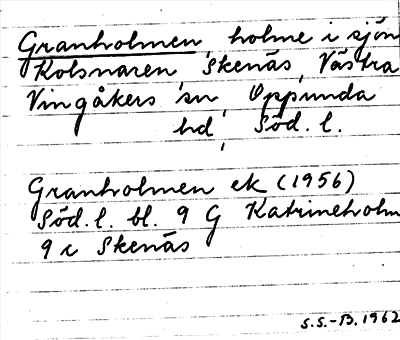 Granholmen, holme i sjön
Kolsnaren, Skenäs, Västra
Vingåkers sn, Oppunda
hd, Söd. l.
Granholmen ek (1956)
Söd. l. bl. 9 G Katrineholm
9 c Skenäs
S.S.-B. 1962